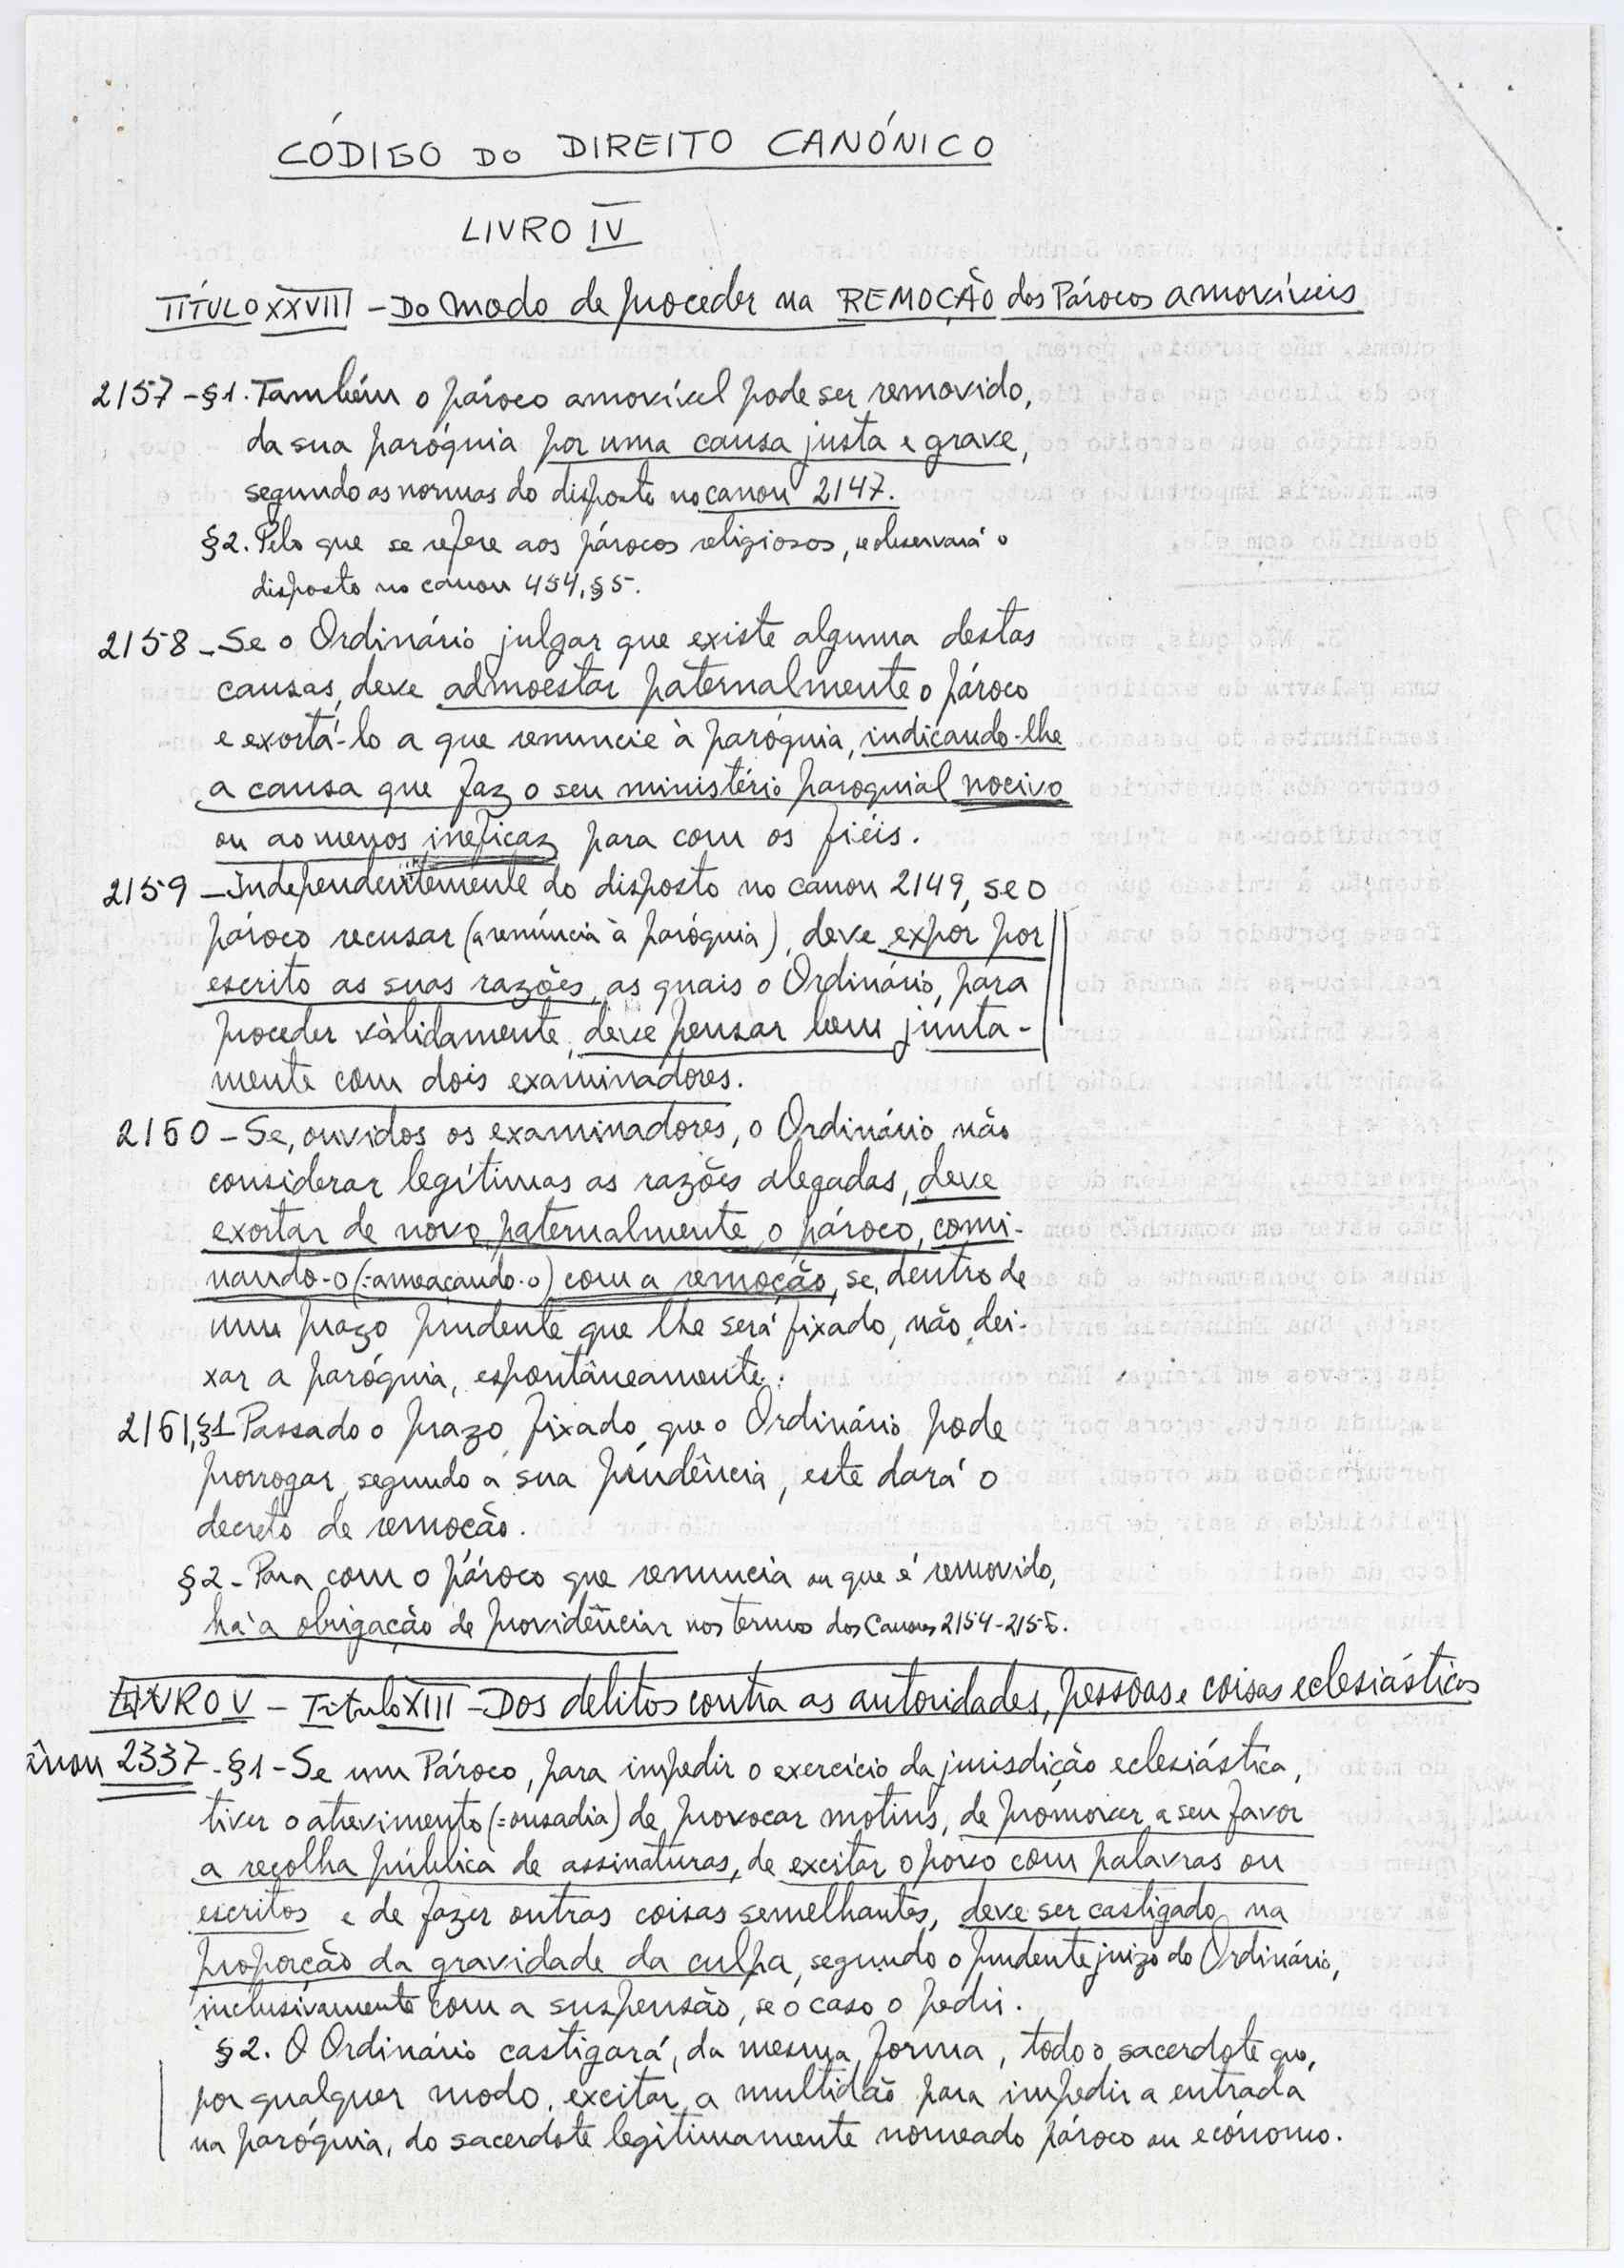 CÓDIGO DO DIREITO CANÓNICO
LIVRO IV
TÍTULO XXVIII - Do modo de proceder na REMOÇÃO dos Párocos amovíveis
2157 - §1. Também o pároco amovível pode ser removido,
da sua paróquia por uma causa justa e grave,
segundo as normas do disposto no canon 2147.
§2. Pelo que se refere aos párocos religiosos, se observará o
disposto no canon 454, §5.
2158 - Se o Ordinário julgar que existe alguma destas
causas, deve admoestar paternalmente o pároco
e exortá-lo a que renuncie à paróquia, indicando-lhe
a causa que faz o seu ministério paroquial nocivo
ou ao menos ineficaz para com os fiéis.
2159 - Independentemente do disposto no canon 2149, se o
pároco recusar (a renúncia à paróquia), deve expôr por
escrito as suas razões, as quais o Ordinário, para
proceder vàlidamente, deve pensar bem junta-
mente com dois examinadores.
2160 - Se, ouvidos os examinadores, o Ordinário não
considerar legítimas as razões alegadas, deve
exortar de novo, paternalmente, o pároco, comi-
nando-o (=ameaçando-o) com a remoção, se, dentro de
um prazo prudente que lhe será fixado, não dei-
xar a paróquia, espontâneamente.
2161, §1 Passado o prazo fixado, que o Ordinário pode
prorrogar, segundo a sua prudência, este dará o
decreto de remoção.
§2 - Para com o pároco que renuncia ou que é removido,
há a obrigação de providênciar nos termos dos Canones 2154-2156.
LIVRO V - Título XIII - Dos delitos contra as autoridades, pessoas e coisas eclesiásticas
ânon 2337 - §1 - Se um Pároco, para impedir o exercício da jurisdição eclesiástica,
tiver o atrevimento (=ousadia) de provocar motins, de promover a seu favor
a recolha pública de assinaturas, de excitar o povo com palavras ou
escritos e de fazer outras coisas semelhantes, deve ser castigado na
proporção da gravidade da culpa, segundo o prudente juízo do Ordinário,
inclusivamente com a suspensão, se o caso o pedir.
§2. O Ordinário castigará, da mesma forma, todo o sacerdote que,
por qualquer modo, excitar a multidão para impedir a entrada
na paróquia, do sacerdote legitimamente nomeado pároco ou ecónomo.